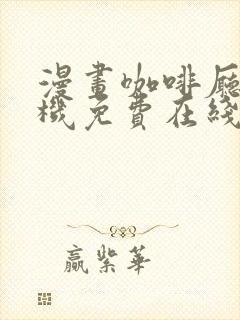 漫畫咖啡廳
機免費在綫
贏紫華